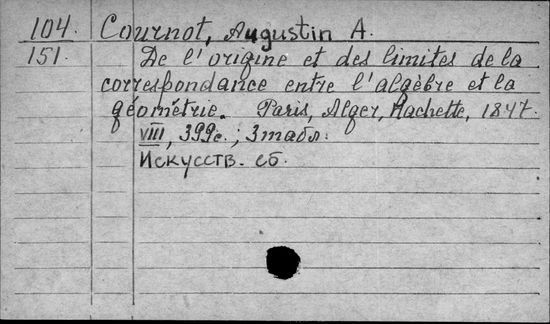 104. Cournot, Augustin A.
151. De l'origine et des limites de la
correspondance entre l'algèbre et la
géométrie. Paris, Alger, Hachette, 1847.
VIII, 399с.; 3 табл.
Искусств. сб.